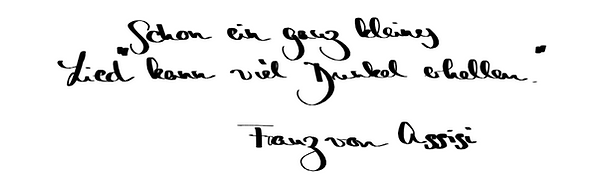 "Schon ein ganz kleines
Lied" kann viel Dunkel erhellen."
Franz von Assisi